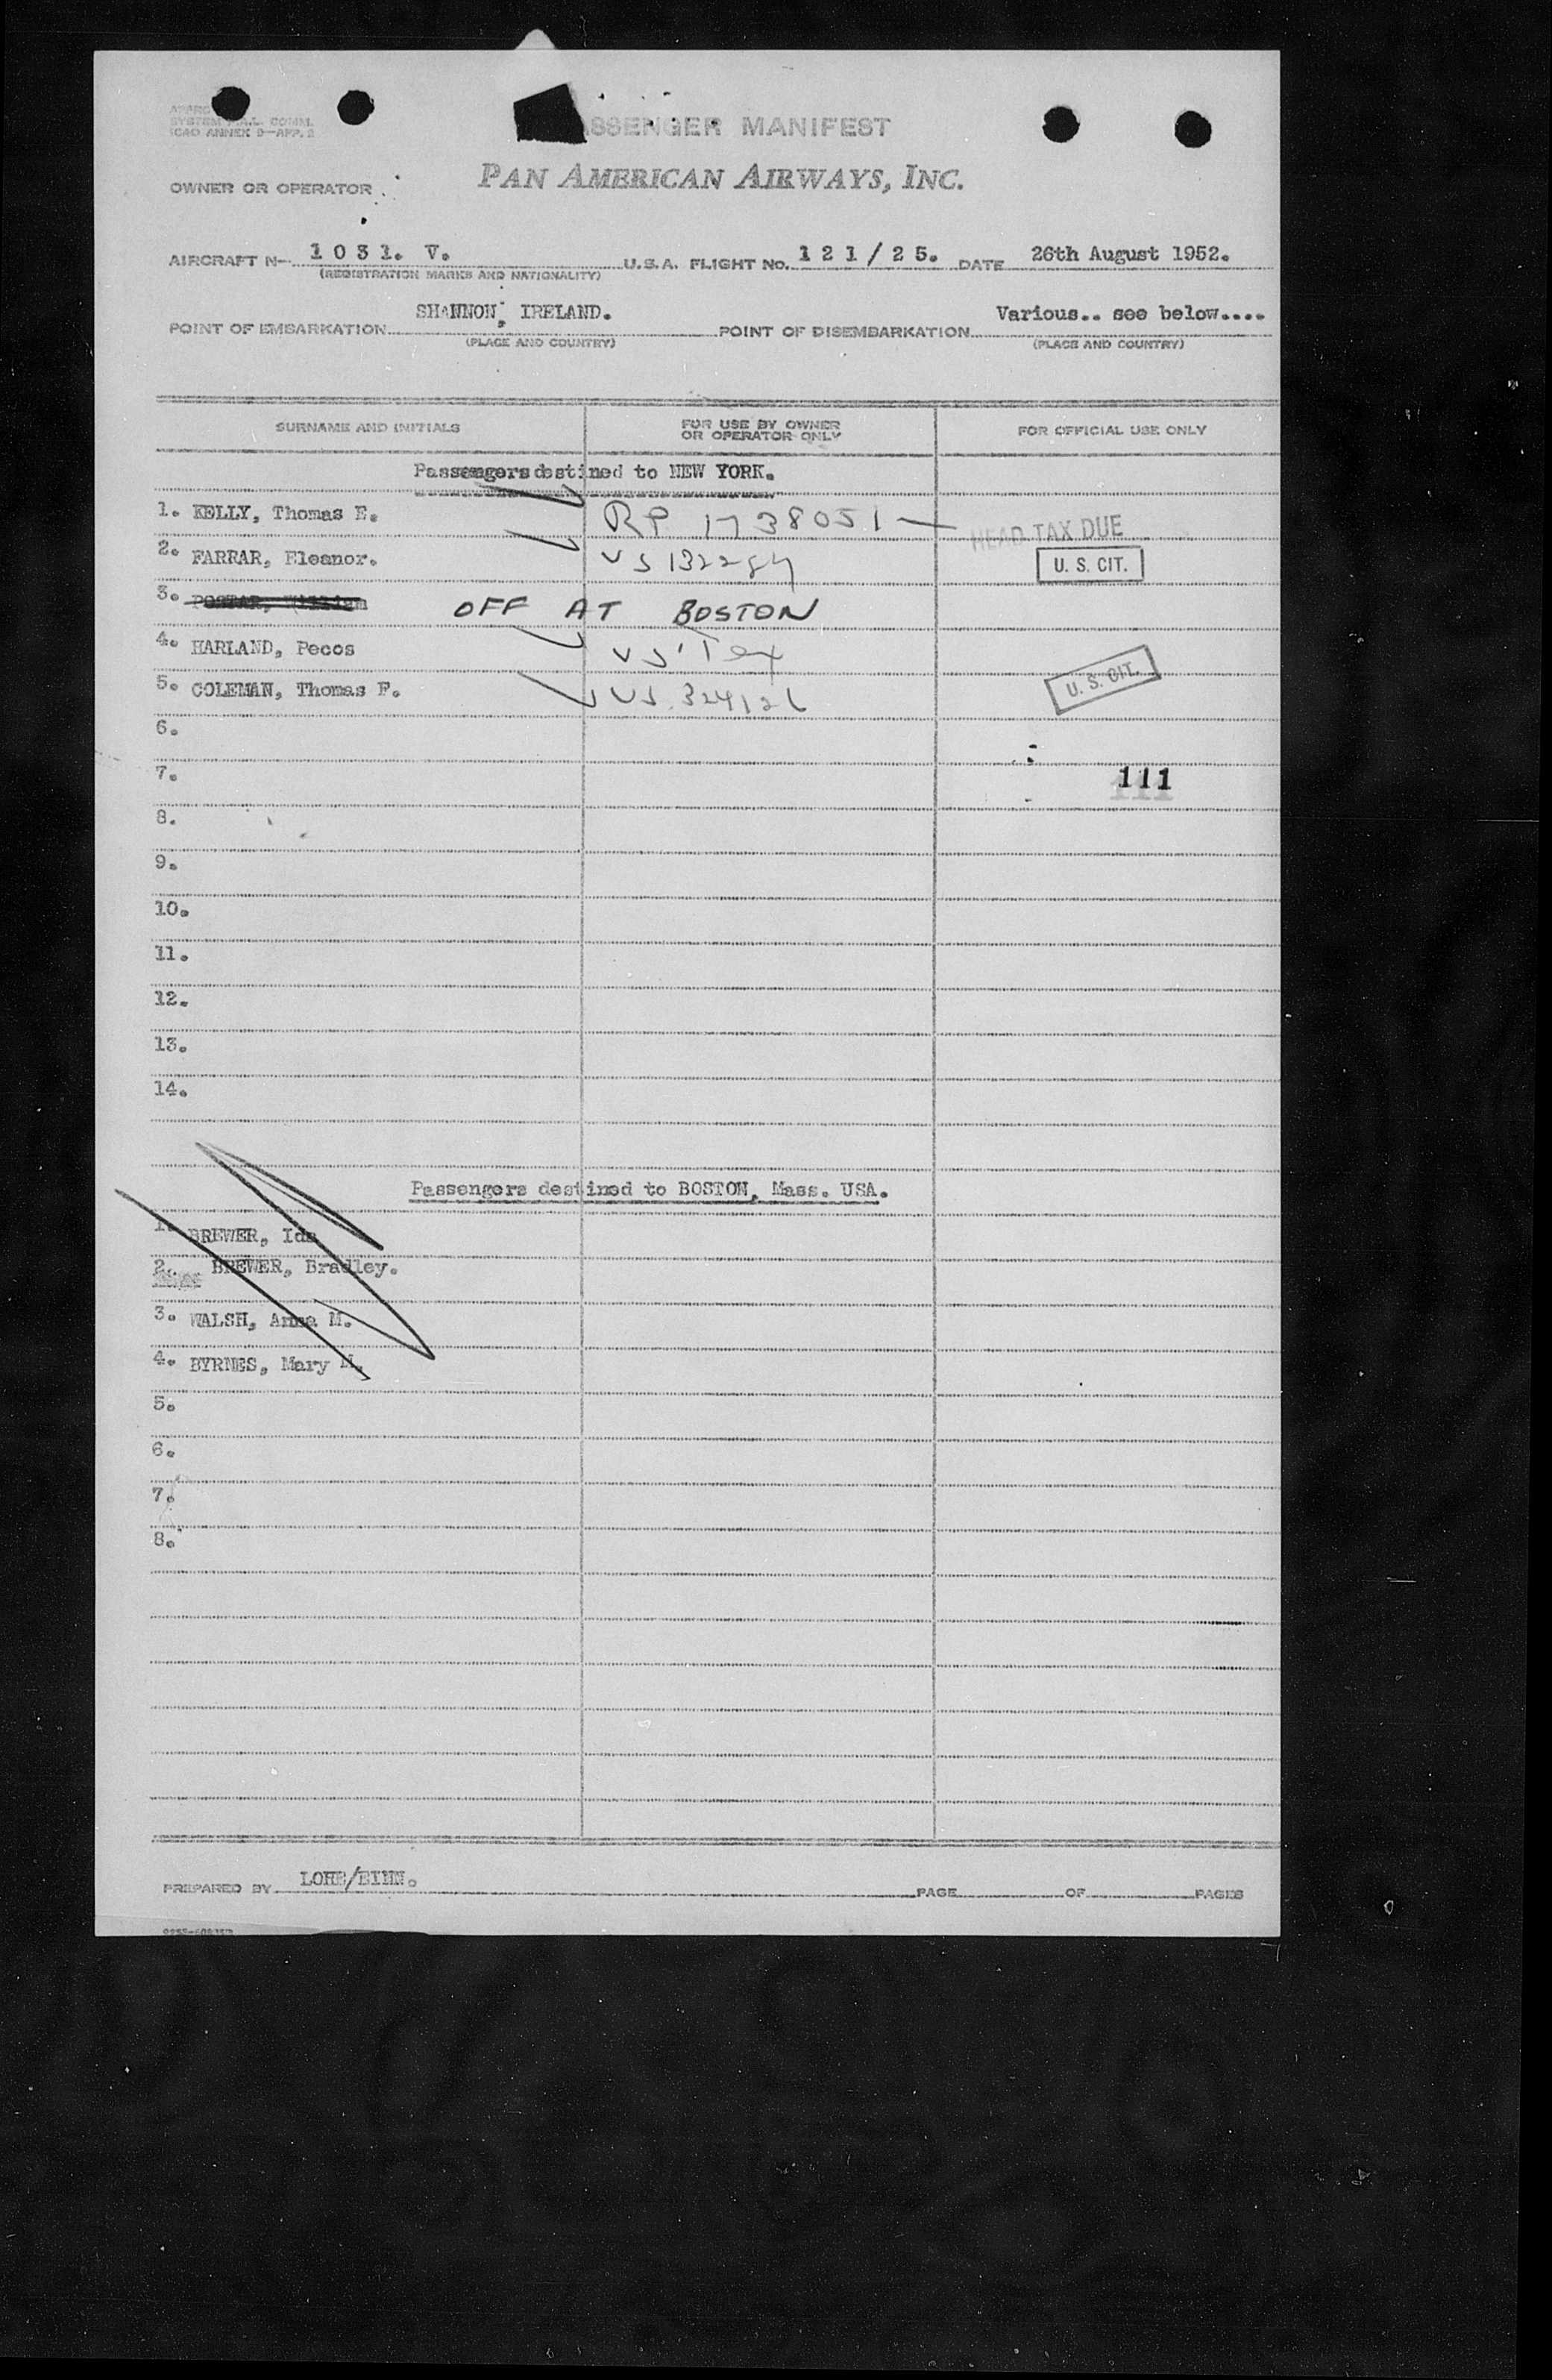 SYSTEM P.A.L. COMM.
ICAO ANNEX 9—APP. 2
PASSENGER MANIFEST
OWNER OR OPERATOR
PAN AMERICAN AIRWAYS, INC.
AIRCRAFT N— 1 0 3 1. V. U.S.A. FLIGHT No. 1 2 1 / 2 5. DATE 26th August 1952.
(REGISTRATION MARKS AND NATIONALITY)
POINT OF EMBARKATION SHANNON, IRELAND. POINT OF DISEMBARKATION Various.. see below....
(PLACE AND COUNTRY) (PLACE AND COUNTRY)
SURNAME AND INITIALS FOR USE BY OWNER OR OPERATOR ONLY FOR OFFICIAL USE ONLY
Passengers destined to NEW YORK.
1. KELLY, Thomas E. RP 1738051 — HEAD TAX DUE
2. FARRAR, Eleanor. US 132284 U. S. CIT.
3. William OFF AT BOSTON
4. HARLAND, Pecos US Tex
5. COLEMAN, Thomas F. US. 324126 U. S. CIT.
6.
7. 111
8.
9.
10.
11.
12.
13.
14.
Passengers destined to BOSTON, Mass. USA.
1. BREWER, Ida
2. BREWER, Bradley.
3. WALSH, Anna M.
4. BYRNES, Mary M.
5.
6.
7.
8.
PREPARED BY PAGE OF PAGES